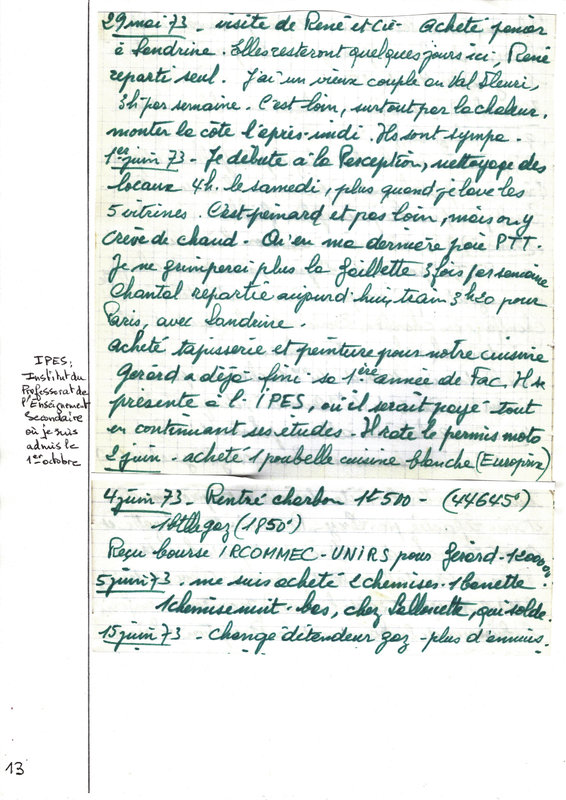 29 mai 73 - visite de René et Cie - Acheté panier
à Sandrine. Elles resteront quelques jours ici, René
reparti seul. J'ai un vieux couple au Val Fleuri,
3h par semaine. C'est loin, surtout par la chaleur,
monter la côte l'après-midi. Ils sont sympa.
1er juin 73 - Je débute à la Perception, nettoyage des
locaux 4h. le samedi, plus quand je lave les
5 vitrines. C'est peinard et pas loin, mais on y
crève de chaud. Qu'en ma dernière paie PTT.
Je ne grimperai plus la Gaillette 3 fois par semaine
Chantal repartie aujourd'hui, train 3h20 pour
Paris, avec Sandrine.
acheté tapisserie et peinture pour notre cuisine
Gérard a déjà fini sa 1ère année de Fac. Il se
présente à l'IPES, où il serait payé tout
en continuant ses études. Il rate le permis moto
2 juin - acheté 1 poubelle cuisine blanche (Europrix)
IPES:
Institut du
Professorat de
l'Enseignement
Secondaire
où je suis
admis le
1er octobre
4 juin 73. Rentré charbon 1t500 - (44645°)
1 btlle gaz (1850°)
Reçu bourse IRCOMMEC-UNIRS pour Gérard -
5 juin 73. me suis acheté 2 chemises - 1 banette
1 chemise nuit - bas, chez Lallouette, qui solde.
15 juin 73 - Changé détendeur gaz - plus d'ennuis.
13